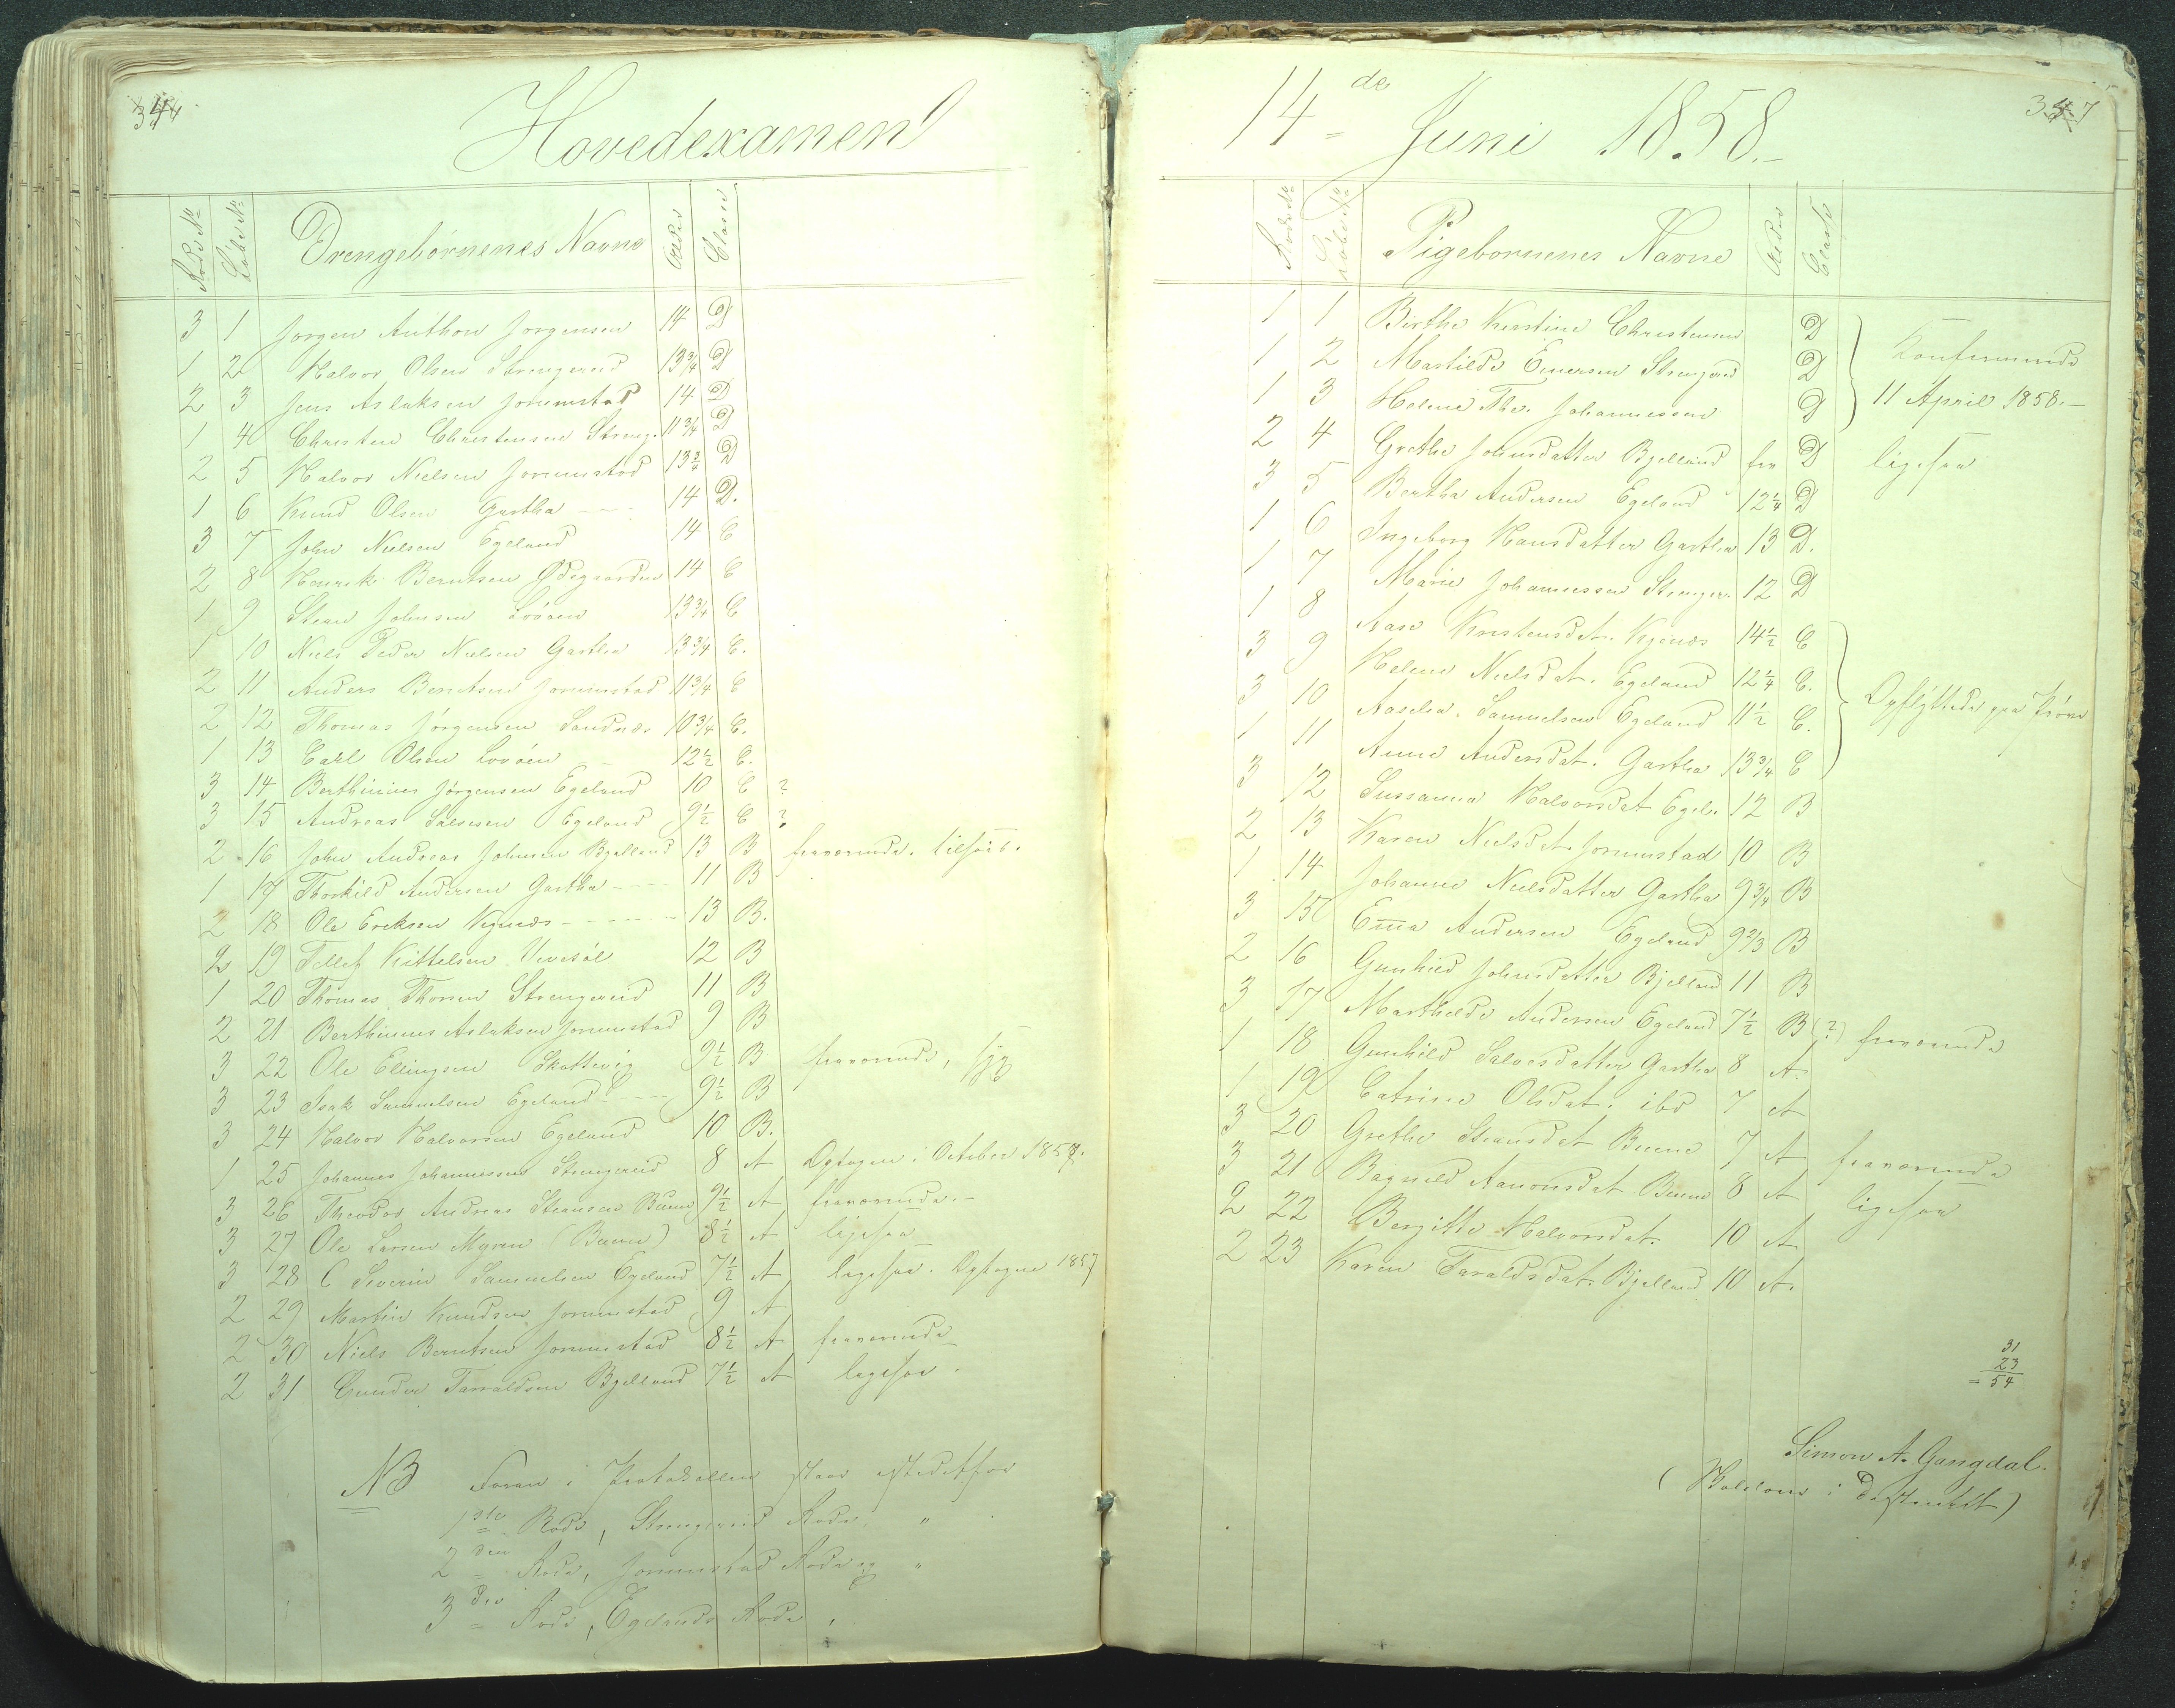 Hovedexamen
Rode No Løbe No Drengebørnenes Navne Alder Classe
3 1 Jørgen Anthon Jørgensen 14 D
1 2 Halvor Olsen Strengereid 13 3/4 D
2 3 Jens Aslaksen Jommestad 14 D
1 4 Christen Christensen Streng. 11 3/4 D
2 5 Halvor Nielsen Jommestad 13 3/4 D
1 6 Knud Olsen Gartha 14 D.
3 7 John Nielsen Egeland 14 C
2 8 Henrik Berntsen Ødegaarden 14 C
1 9 Stean Johnsen 13 3/4 C
1 10 Niels Peder Nielsen Gartha 13 3/4 C.
2 11 Anders Berntsen Jommestad 11 3/4 C
2 12 Thomas Jørgensen Sandnæs 10 3/4 C.
1 13 Carl Olsen 12 1/2 C.
3 14 Berthinius Jørgensen Egeland 10 C ?
3 15 Andreas Salvesen Egeland 9 1/2 C ?
2 16 John Andreas Johnsen Bjelland 13 B fraværende.
1 17 Thorkild Andersen Gartha 11 B
2 18 Ole Ericksen Kjenæs 13 B.
2 19 Tellef Kittelsen 12 B
1 20 Thomas Thorsen Strengereid 11 B
2 21 Berthinius Aslaksen Jommestad 9 B
3 22 Ole Ellingsen Skottevig 9 1/2 B fraværende, syg
3 23 Isak Samuelsen Egeland 9 1/2 B
3 24 Halvor Halvorsen Egeland 10 B.
1 25 Johannes Johannessen Strengereid 8 A Optagen i October 1857.
3 26 Theodor Andreas Steansen Buene 9 1/2 A fraværende.
3 27 Ole Larsen Myren (Buene) 8 1/2 A ligesaa
3 28 C Severin Samuelsen Egeland 7 1/2 A ligesaa. Optagen 1857
2 29 Martin Knudsen Jommestad 9 A
2 30 Niels Berntsen Jommestad 8 1/2 A fraværende
2 31 Gunder Tarraldsen Bjelland 7 1/2 A ligesaa.
NB Foran i Protokollen staar istedetfor
1ste Rode, Strengereid Rode, "
2den Rode, Jommestad Rode og "
3die Rode, Egelands Rode,
14de Juni 1858.-
347
Rode No Løbe No Pigebørnenes Navne Alder Classe
1 1 Birthe Kirstine Christensen D
1 2 Marthilde Emersen Strengereid D Konfirmerede
1 3 Helene The. Johannessen D 11 April 1858.-
2 4 Grethe Johnsdatter Bjelland fra D ligesaa
3 5 Bertha Andersen Egeland 12 1/4 D
1 6 Ingeborg Hansdatter Gartha 13 D.
1 7 Marie Johannessen Strenger. 12 D
1 8 Aase Kristensdat. Kjenæs 14 1/2 C
3 9 Helene Nielsdat. Egeland 12 1/4 C.
3 10 Aaselia Samuelsen Egeland 11 1/2 C. Opflyttede paa Prøve
1 11 Anne Andersdat. Gartha 13 3/4 C
3 12 Sussanna Halvorsdat Egel. 12 B
2 13 Karen Nielsdat. Jommestad 10 B
1 14 Johanne Nielsdatter Gartha 9 3/4 B
3 15 Emma Andersen Egeland 9 2/3 B
2 16 Gunhild Johnsdatter Bjelland 11 B
3 17 Marthilde Andersen Egeland 7 1/2 B (?) fraværende
1 18 Gunhild Salvesdatter Gartha 8 A.
1 19 Catrine Olsdat. ibd 7 A
3 20 Grethe Steansdat Buene 7 A fraværende
3 21 Ragnild Aanonsdat Buene 8 A ligesaa
2 22 Bergitte Halvorsdat. 10 A
2 23 Karen Taraldsdat. Bjelland 10 A.
31
23
= 54
Simon A. Gangdal.